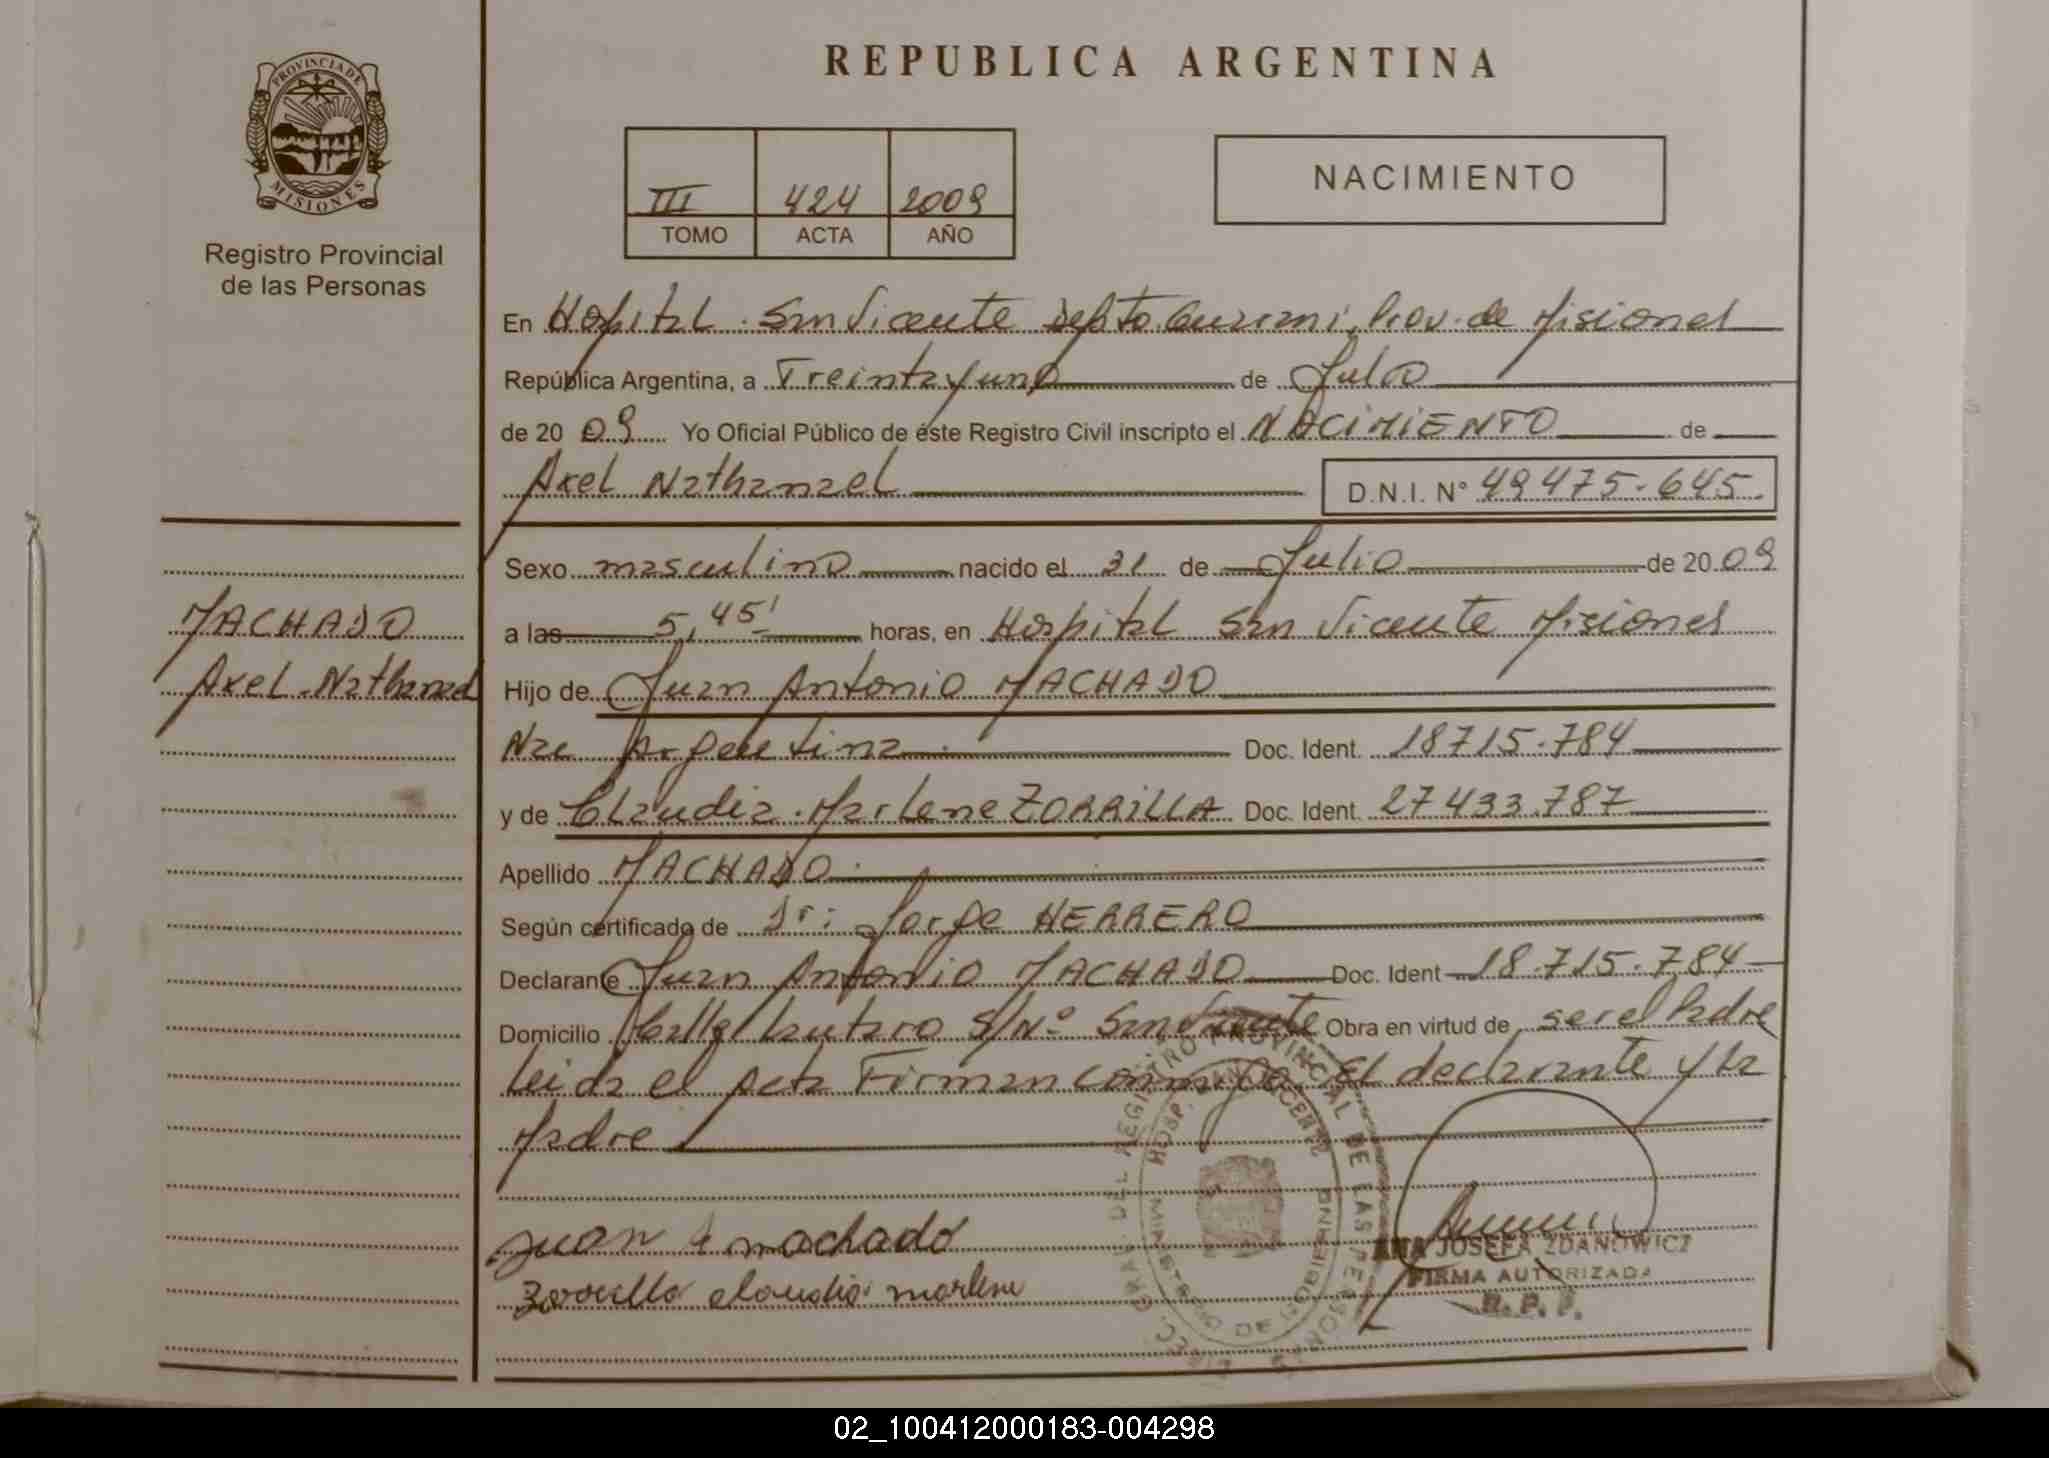 PROVINCIA DE
MISIONES
Registro Provincial
de las Personas
MACHADO
Axel Nathanael
REPUBLICA ARGENTINA
III 424 2009
TOMO ACTA AÑO
NACIMIENTO
En Hospital San Vicente Depto Guarani, Prov. de Misiones
República Argentina, a Treinta y uno de Julio
de 20 09 Yo Oficial Público de éste Registro Civil inscripto el NACIMIENTO de
Axel Nathanael D.N.I. N° 49475.645.
Sexo masculino nacido el de Julio de 20 09
a las 5,45' horas, en Hospital San Vicente Misiones
Hijo de Juan Antonio MACHADO
Nac Argentina Doc. Ident. 18715.784
y de Claudia Marlene ZORRILLA Doc. Ident. 27433.787
Apellido MACHADO
Según certificado de Dr: Jorge HERRERO
Declarante Juan Antonio MACHADO Doc. Ident 18.715.784
Domicilio Calle Lautaro S/N° San Vicente Obra en virtud de ser el Padre
Leida el Acta Firman conmigo El declarante y la
Madre
juan A machado
Zorrilla claudia marlene
DIREC. GRAL. DEL REGISTRO PROVINCIAL DE LAS PERSONAS
HOSP. SAN VICENTE
MINISTERIO DE GOBIERNO
ANA JOSEFA ZDANOWICZ
FIRMA AUTORIZADA
R. P. P.
02_100412000183-004298